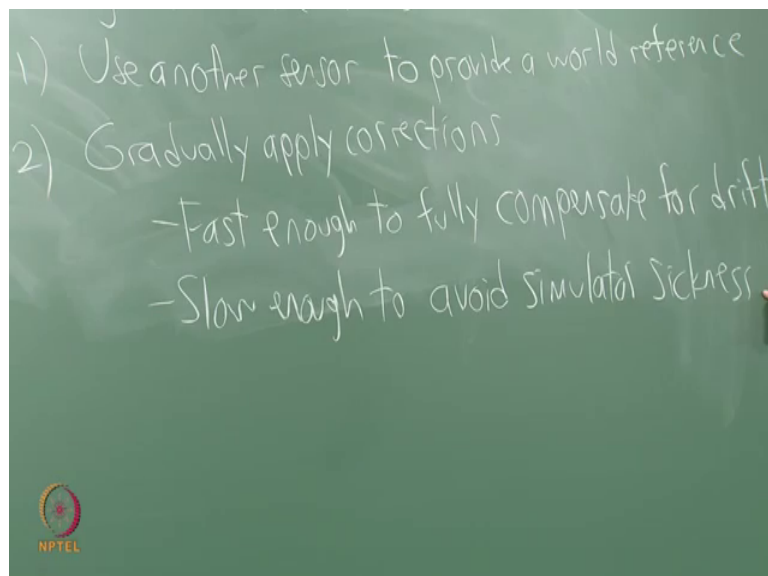 1) Use another sensor to provide a world reference
2) Gradually apply corrections
- Fast enough to fully compensate for drift
- Slow enough to avoid simulator sickness
NPTEL